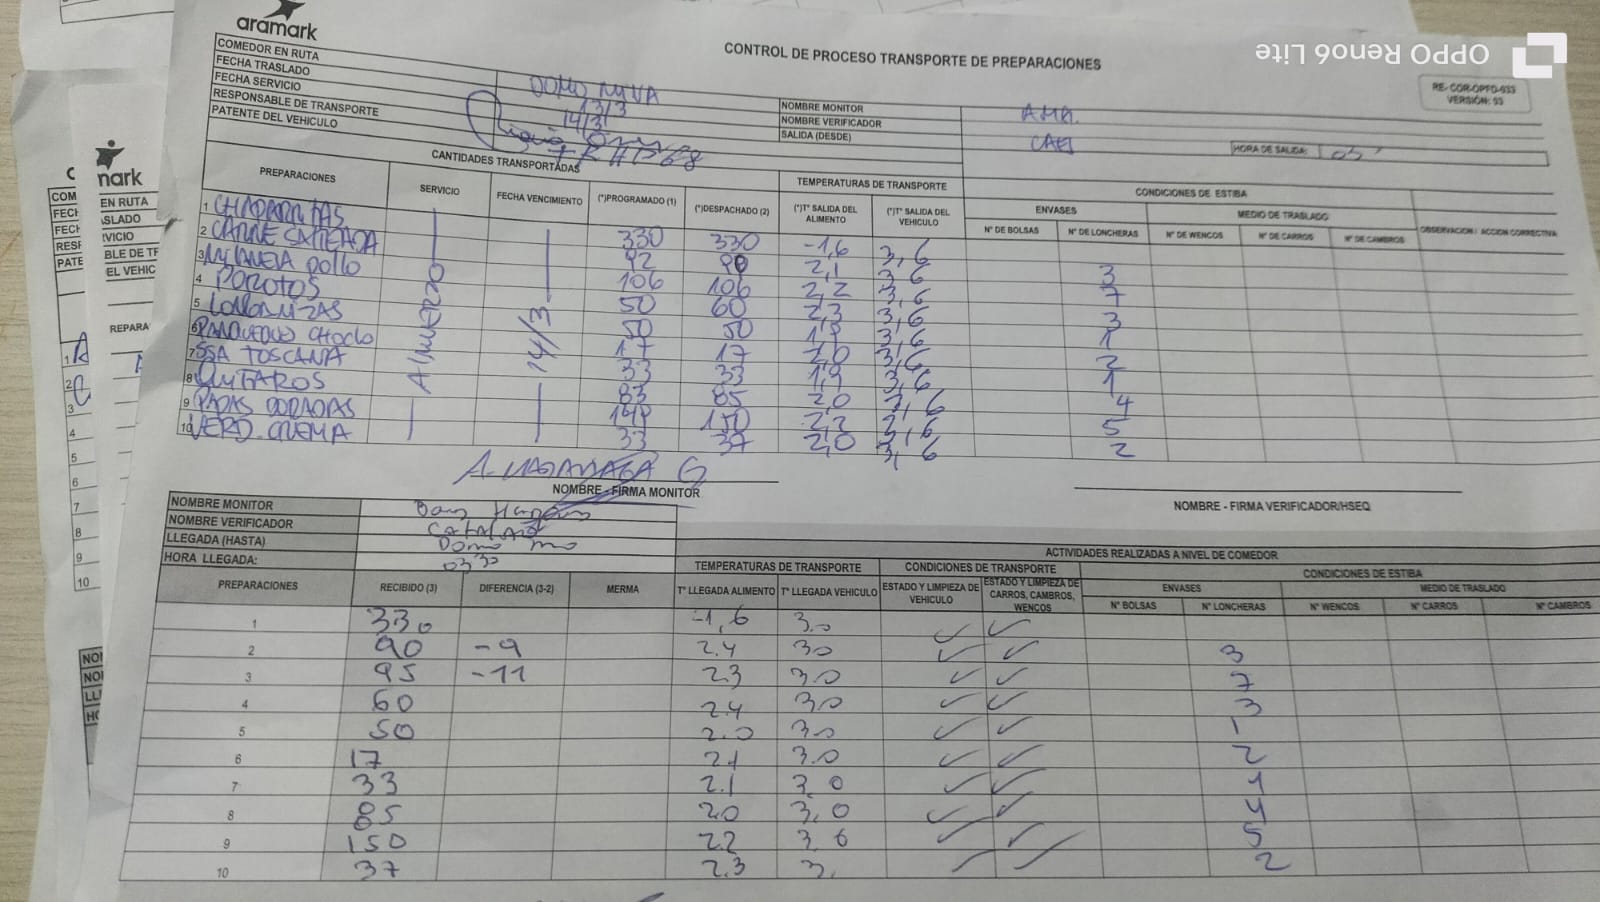 aramark
CONTROL DE PROCESO TRANSPORTE DE PREPARACIONES
OPPO Reno6 Lite
RE- COR-OPFD-033
VERSIÓN: 03
COMEDOR EN RUTA DOMO MIVA
FECHA TRASLADO 13/3
FECHA SERVICIO 14/3
RESPONSABLE DE TRANSPORTE
PATENTE DEL VEHICULO
NOMBRE MONITOR
NOMBRE VERIFICADOR
SALIDA (DESDE)
HORA DE SALIDA:
CANTIDADES TRANSPORTADAS TEMPERATURAS DE TRANSPORTE CONDICIONES DE ESTIBA
ENVASES MEDIO DE TRASLADO
PREPARACIONES SERVICIO FECHA VENCIMIENTO (*)PROGRAMADO (1) (*)DESPACHADO (2) (*)T° SALIDA DEL ALIMENTO (*)T° SALIDA DEL VEHICULO N° DE BOLSAS N° DE LONCHERAS N° DE WENCOS N° DE CARROS N° DE CAMBROS OBSERVACION / ACCION CORRECTIVA
ALMUERZO 14/3
1 330 330 -1,6 3,6
2 CARNE SALTEADA 92 90 2,1 3,6 3
3 MILANESA POLLO 106 106 2,2 3,6 7
4 POROTOS 50 60 2,3 3,6 3
5 LONGANIZAS 50 50 1,9 3,6 1
6 PANQUEQUE CHOCLO 17 17 2,0 3,6 2
7 SSA TOSCANA 33 33 1,9 3,6 1
8 83 85 2,0 3,6 4
9 PAPAS DORADAS 148 150 2,2 3,6 5
10 VERD. CREMA 33 37 2,0 3,6 2
NOMBRE - FIRMA MONITOR
NOMBRE - FIRMA VERIFICADOR/HSEQ
NOMBRE MONITOR
NOMBRE VERIFICADOR
LLEGADA (HASTA)
HORA LLEGADA: 0330
ACTIVIDADES REALIZADAS A NIVEL DE COMEDOR
TEMPERATURAS DE TRANSPORTE CONDICIONES DE TRANSPORTE CONDICIONES DE ESTIBA
ENVASES MEDIO DE TRASLADO
PREPARACIONES RECIBIDO (3) DIFERENCIA (3-2) MERMA T° LLEGADA ALIMENTO T° LLEGADA VEHICULO ESTADO Y LIMPIEZA DE VEHICULO ESTADO Y LIMPIEZA DE CARROS, CAMBROS, WENCOS N° BOLSAS N° LONCHERAS N° WENCOS N° CARROS N° CAMBROS
1 330 -1,6 3.0 ✓ ✓
2 90 -9 2.4 3.0 ✓ ✓ 3
3 95 -11 2.3 3.0 ✓ ✓ 7
4 60 2.4 3.0 ✓ ✓ 3
5 50 2.0 3.0 ✓ ✓ 1
6 17 2.1 3.0 ✓ ✓ 2
7 33 2.1 3.0 ✓ ✓ 1
8 85 2.0 3,0 ✓ ✓ 4
9 150 2.2 3,0 ✓ ✓ 5
10 37 2.3 3. 2
aramark
EN RUTA
REPARA